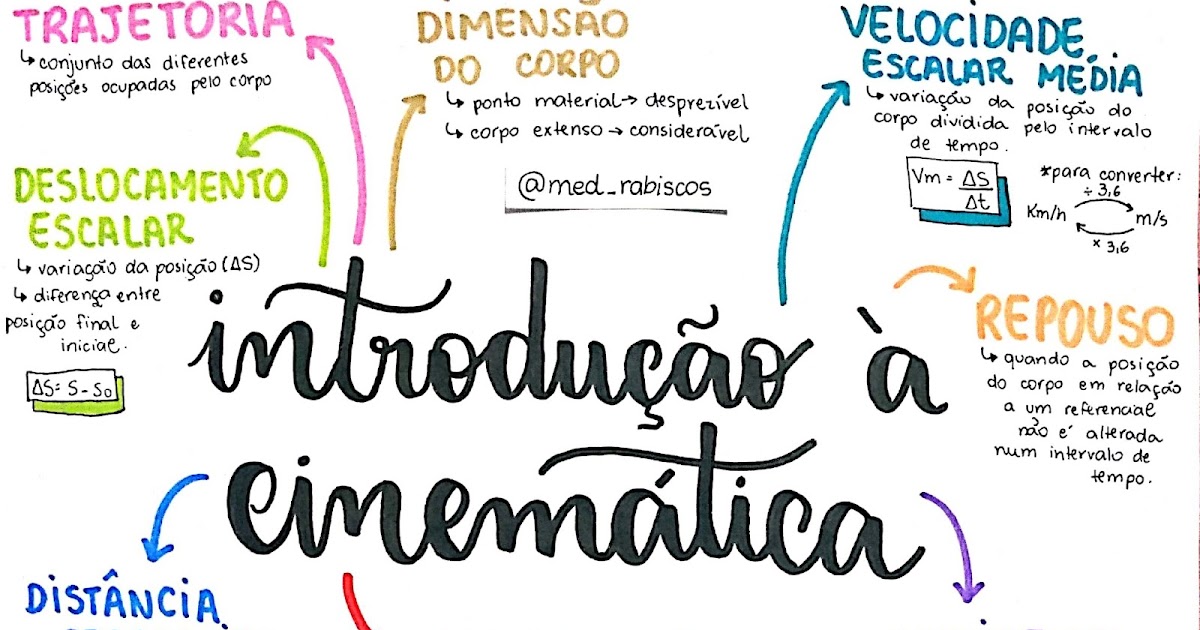 TRAJETÓRIA
↳ conjunto das diferentes
posições ocupadas pelo corpo
DIMENSÃO
DO CORPO
↳ ponto material → desprezível
↳ corpo extenso → considerável
@med_rabiscos
VELOCIDADE
ESCALAR MÉDIA
↳ variação da posição do
corpo dividida pelo intervalo
de tempo.
Vm = ΔS/Δt
*para converter:
÷ 3,6
Km/h m/s
× 3,6
DESLOCAMENTO
ESCALAR
↳ variação da posição (ΔS)
↳ diferença entre
posição final e
inicial.
ΔS = S - S₀
introdução à
cinemática
REPOUSO
↳ quando a posição
do corpo em relação
a um referencial
não é alterada
num intervalo de
tempo.
DISTÂNCIA